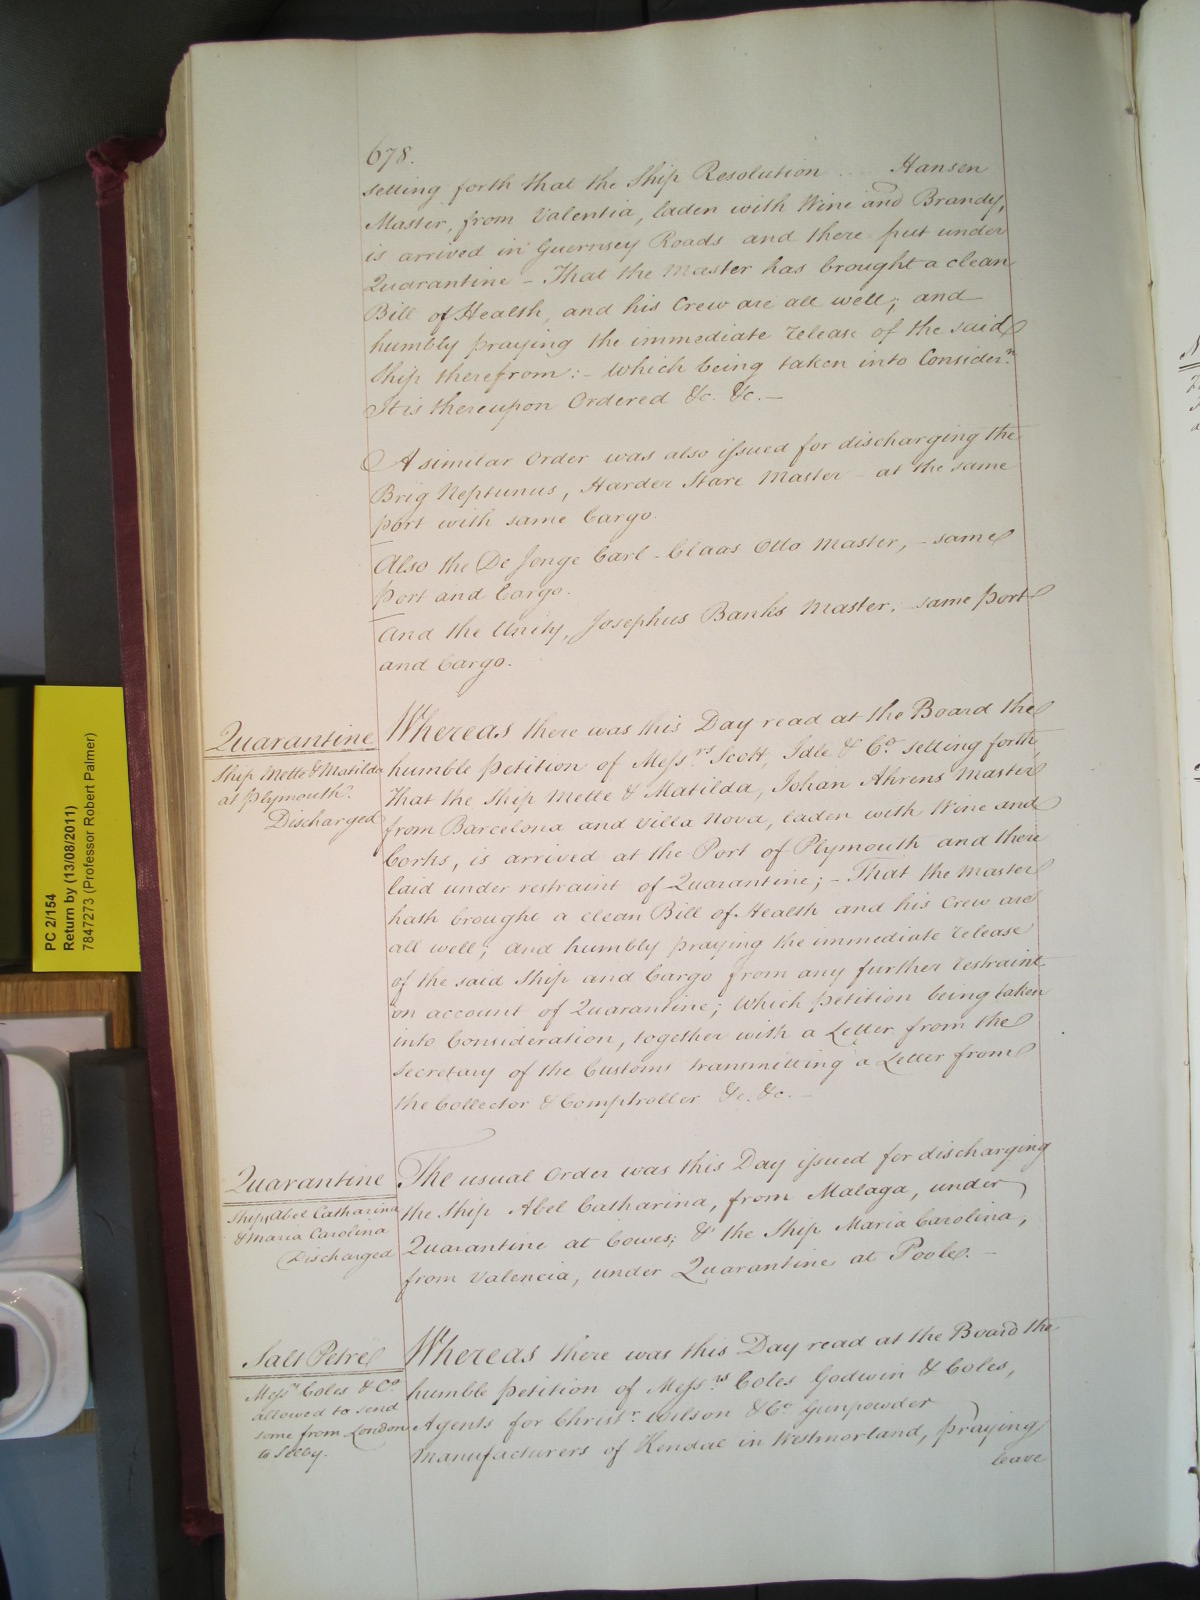 678.
setting forth that the Ship Resolution .. Hansen
Master, from Valentia, laden with Wine and Brandy,
is arrived in Guernsey Roads and there put under
Quarantine – That the Master has brought a clean
Bill of Health, and his Crew are all well; and
humbly praying the immediate release of the said
Ship therefrom: – Which being taken into Considerⁿ.
It is thereupon Ordered &c. &c. –
A similar Order was also issued for discharging the
Brig Neptunus, Harder Stare Master – at the same
port with same Cargo.
Also the De Jonge Carl – Claas Otto Master, – same
Port and Cargo.
And the Unity, Josephus Banks Master, same Port
and Cargo.
Quarantine
Ship Mette & Matilda
at Plymouth.
Discharged
Whereas there was this Day read at the Board the
humble Petition of Messʳˢ Scott, Idle & Cº. setting forth
That the Ship Mette & Matilda, Johan Ahrens Master
from Barcelona and Villa Nova, laden with Wine and
Corks, is arrived at the Port of Plymouth and there
laid under restraint of Quarantine; – That the Master
hath brought a clean Bill of Health and his Crew are
all well; and humbly praying the immediate release
of the said Ship and Cargo from any further restraint
on account of Quarantine; Which Petition being taken
into Consideration, together with a Letter from the
Secretary of the Customs transmitting a Letter from
the Collector & Comptroller &c. &c. –
Quarantine
Ships Abel Catharina
& Maria Carolina
Discharged
The usual Order was this Day issued for discharging
the Ship Abel Catharina, from Malaga, under
Quarantine at Cowes; & the Ship Maria Carolina,
from Valencia, under Quarantine at Poole. –
Salt Petre
Messʳˢ Coles & Cº.
allowed to send
some from London
to Selby.
Whereas there was this Day read at the Board the
humble Petition of Messʳˢ Coles Godwin & Coles,
Agents for Christʳ. Wilson & Cº Gunpowder
Manufacturers of Kendal in Westmorland, praying
leave
PC 2/154
Return by (13/08/2011)
7847273 (Professor Robert Palmer)